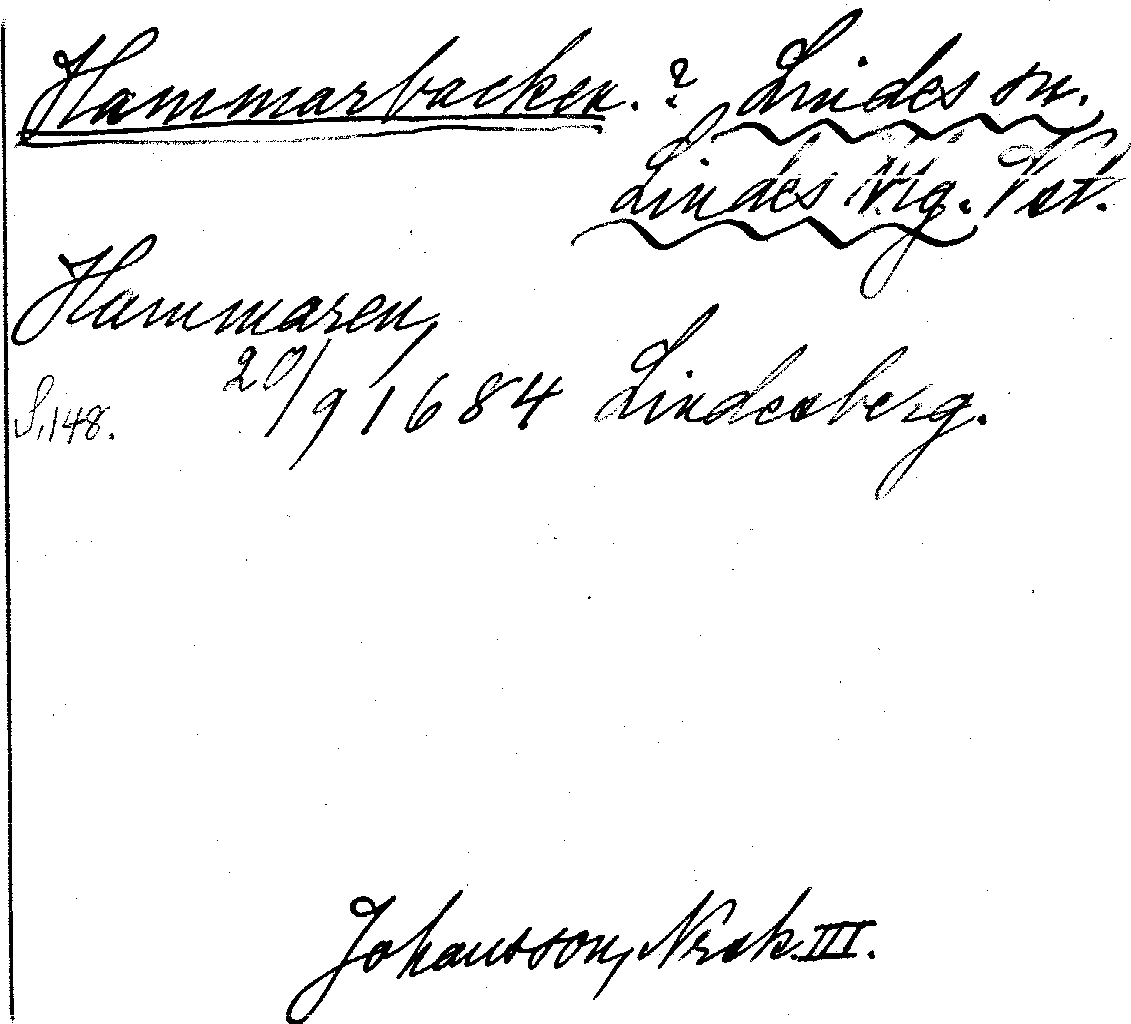 Hammarbacken. ? Lindes sn.
Lindes Btg. Vst.
Hammaren,
20/9 1684 Lindesberg.
S. 148.
Johansson, Norsk. III.